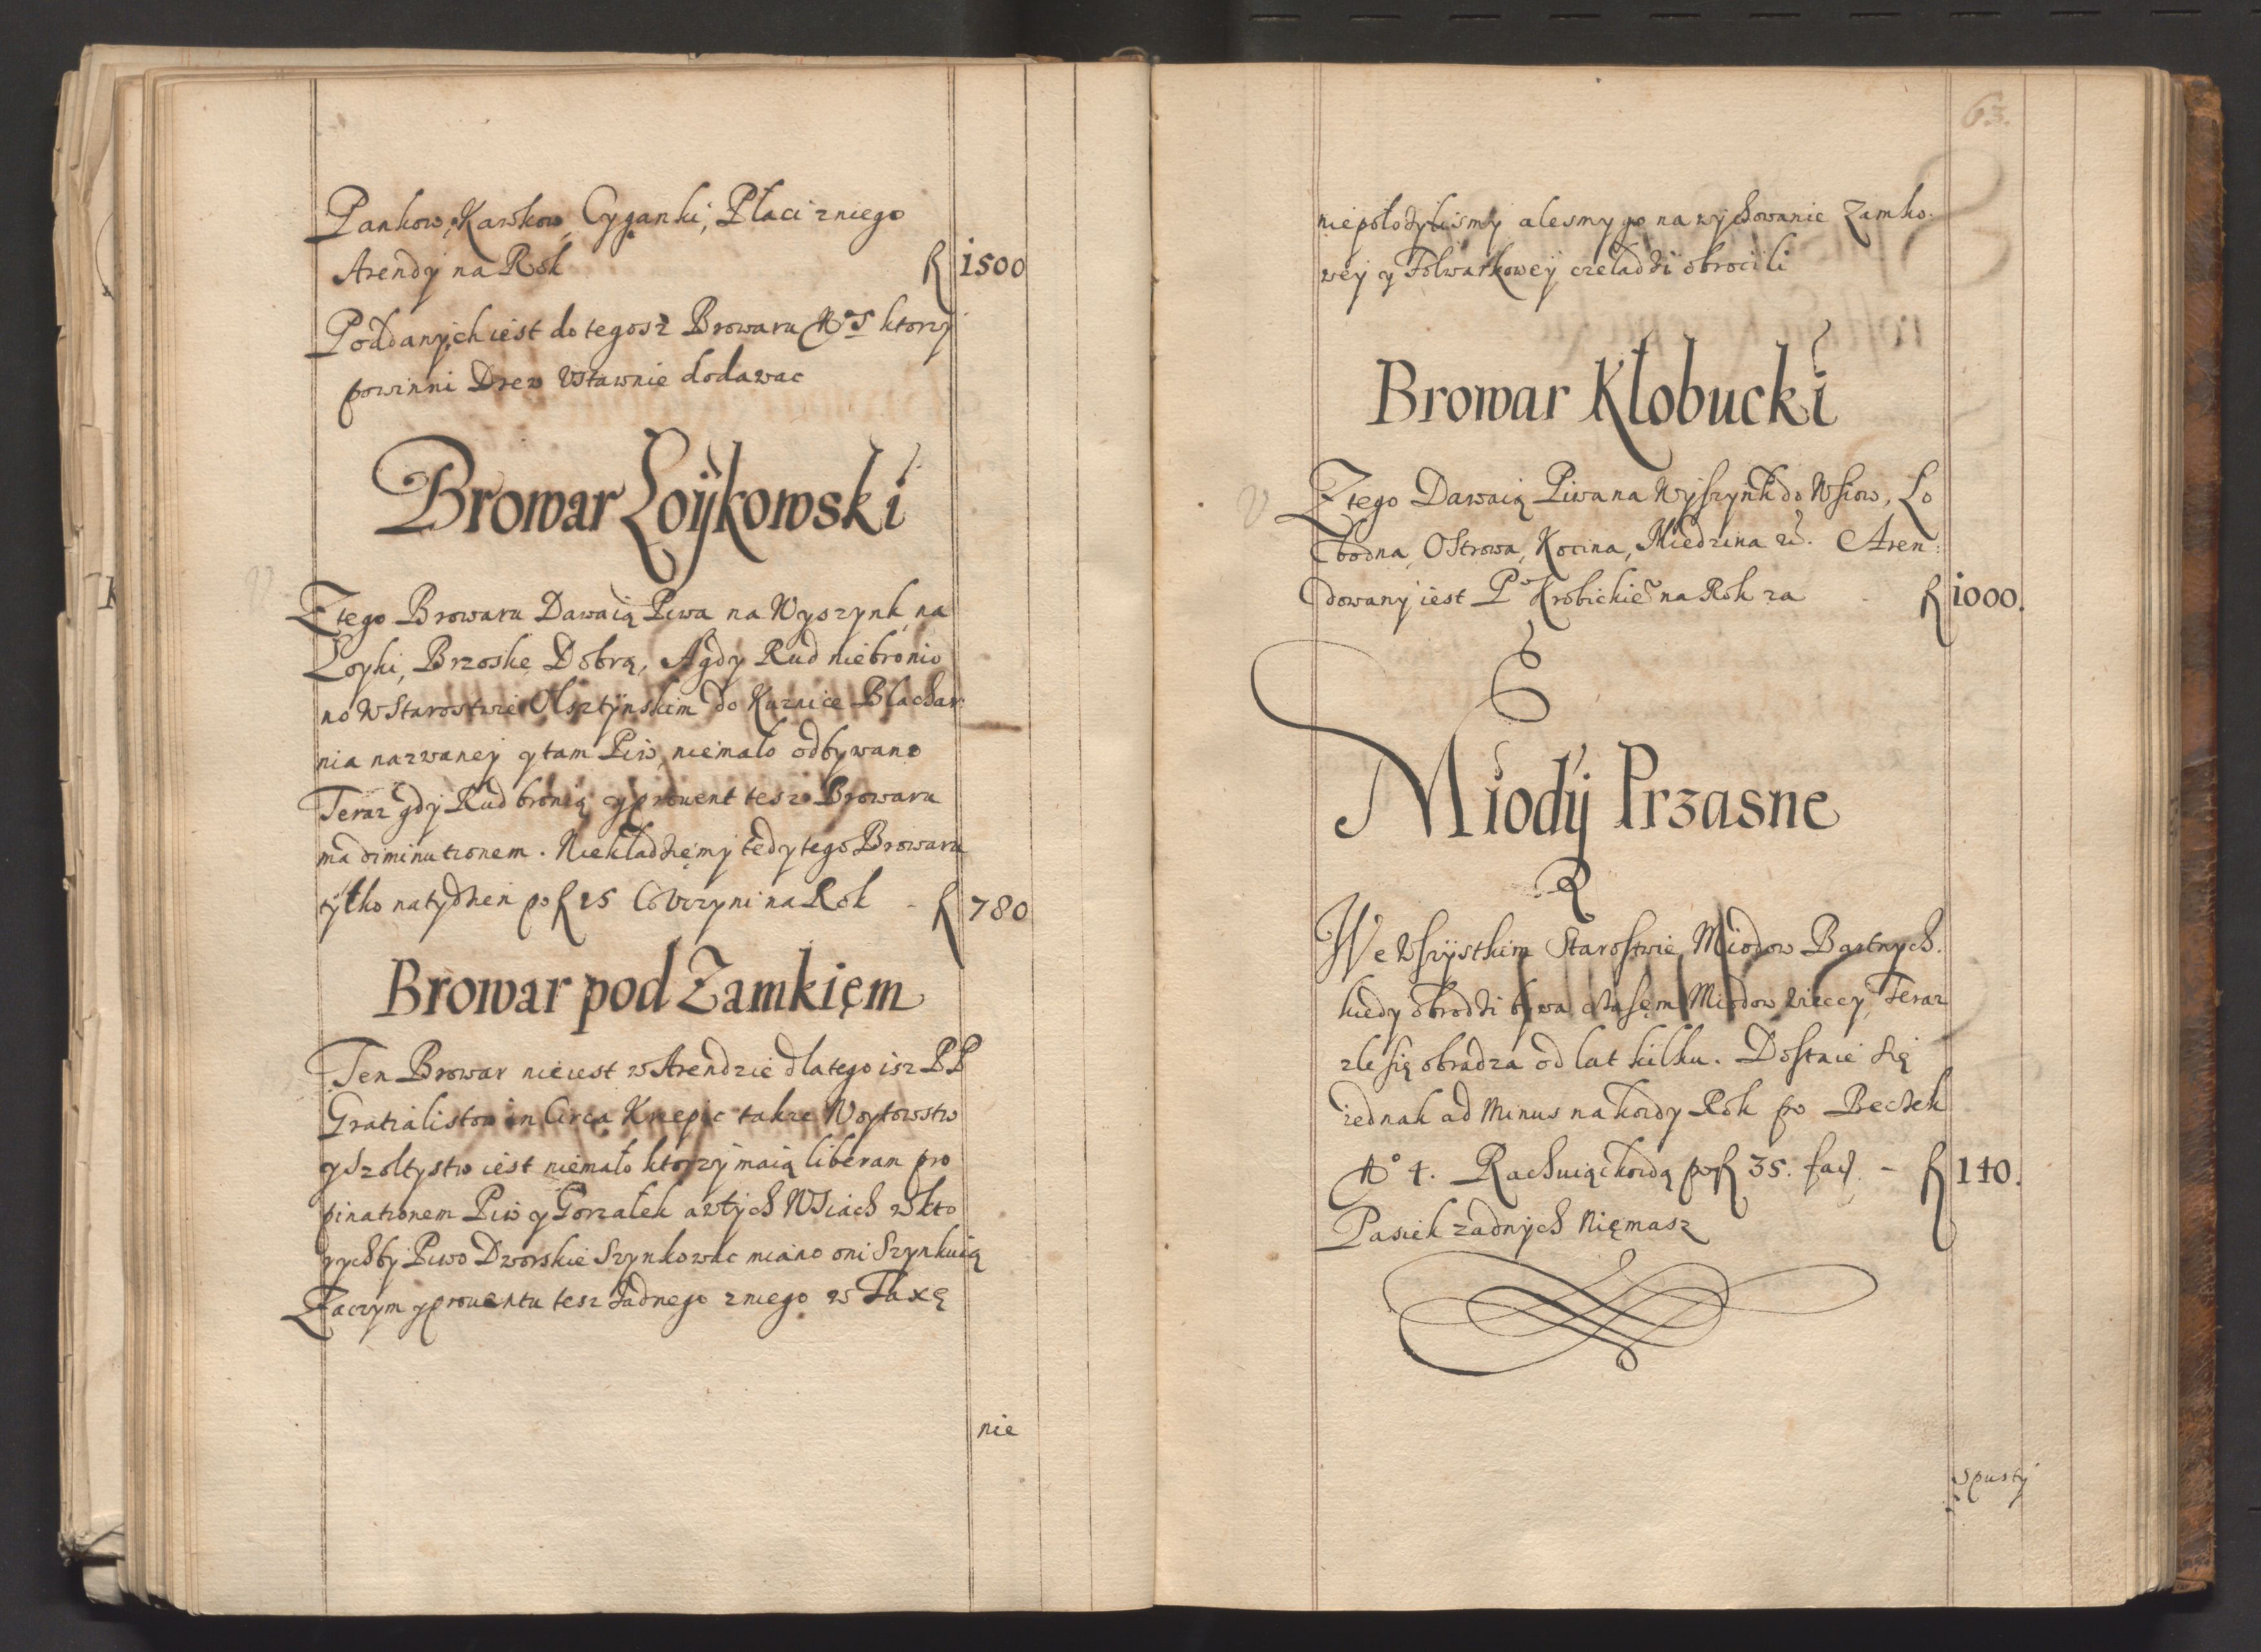 Pankow, Kawkow, Cyganki, Płaci zniego
Arendy na Rok f 1500
Poddanych iest do tegosz Browaru No 5 ktorzy
powinni Drew Vstawnie dodawac
Browar Łoÿkowski
Ztego Browaru Dawaią Piwa na Wyszynk na
Łoyki, Brzoskę Dobrą, A gdy Rud niebronio
no W Starostwie Olsztÿnskim do Kuznice Blachar
nia nazwaney y tam Piw niemało odbywano
Teraz gdy Rud bronią y prouent tesz Browaru
ma diminutionem. Niekładziemy tedy tego Browaru
tÿlko na tydzien po f 15 Co Vczyni na Rok - f 780
Browar pod Zamkięm
Ten Browar nieiest w Arendzie dlatego isz PP
Gratialistow in Circa Krzepic takze Woytowstw
y Szoltystw iest niemało ktorzy maią liberam pro
pinationem Piw y Gorzałek a wtych Wsiach w kto
rychby Piwo Dworskie Szynkowac miano oni Szynkuią
Zaczym y prouentu tesz żadnego zniego w Taxę
nie
63.
niepołożylismy alesmy go na wychowanie Zamko
wey y Folwarkowey czeladzi obrocili
Browar Kłobucki
Ztego Dawaią Piwa na Wyszynk do Wsiow, Ło
bodna, Ostrowa, Kocina, Miedzina Aren:
dowany iest Po Krobickie na Rok za f 1000.
Miodÿ Przasne
We Wszÿstkim Starostwie Miodow Bartnych.
kiedy obrodzi bywa czasęm Miodow wiecey, Teraz
zle się obradza od lat kilku. Dostaie się
iednak ad Minus na kożdy Rok po Beczek
No 4. Rachuiąc kożdą po f 35. fac - f 140.
Pasiek zadnych Nięmasz
spusty